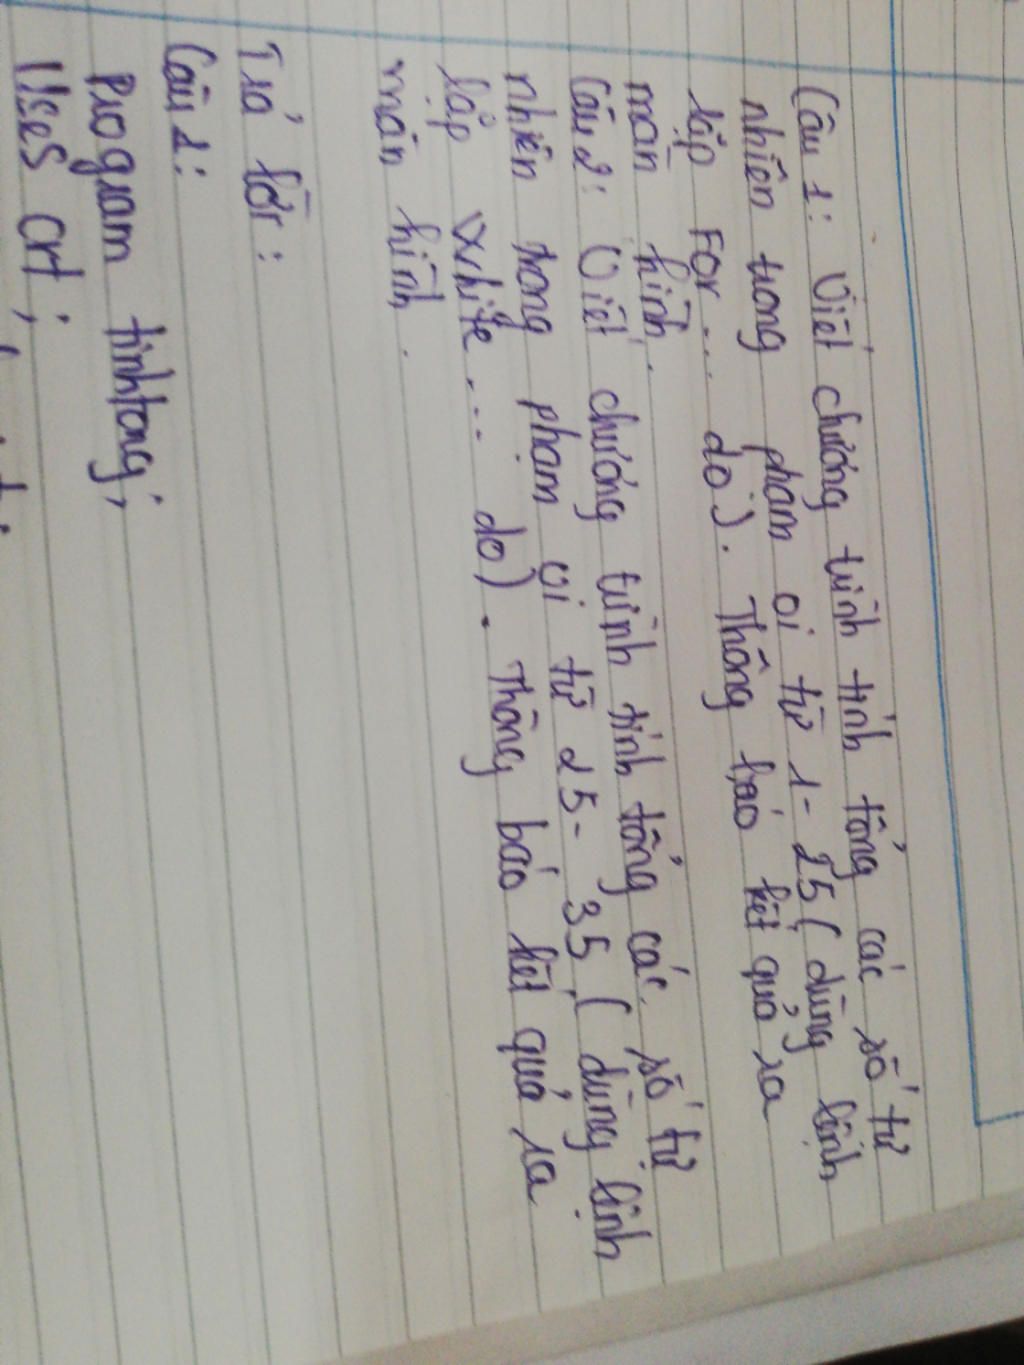 Câu 1: Viết chương trình tính tổng các số tự
nhiên trong phạm vi từ 1-25 (dùng lệnh
lặp For... do). Thông báo kết quả ra
màn hình.
Câu 2: Viết chương trình tính tổng các số tự
nhiên trong phạm vi từ 25-35 (dùng lệnh
lặp While.... do). Thông báo kết quả ra
màn hình.
Trả lời:
Câu 1:
Program tinhtong;
Uses crt;